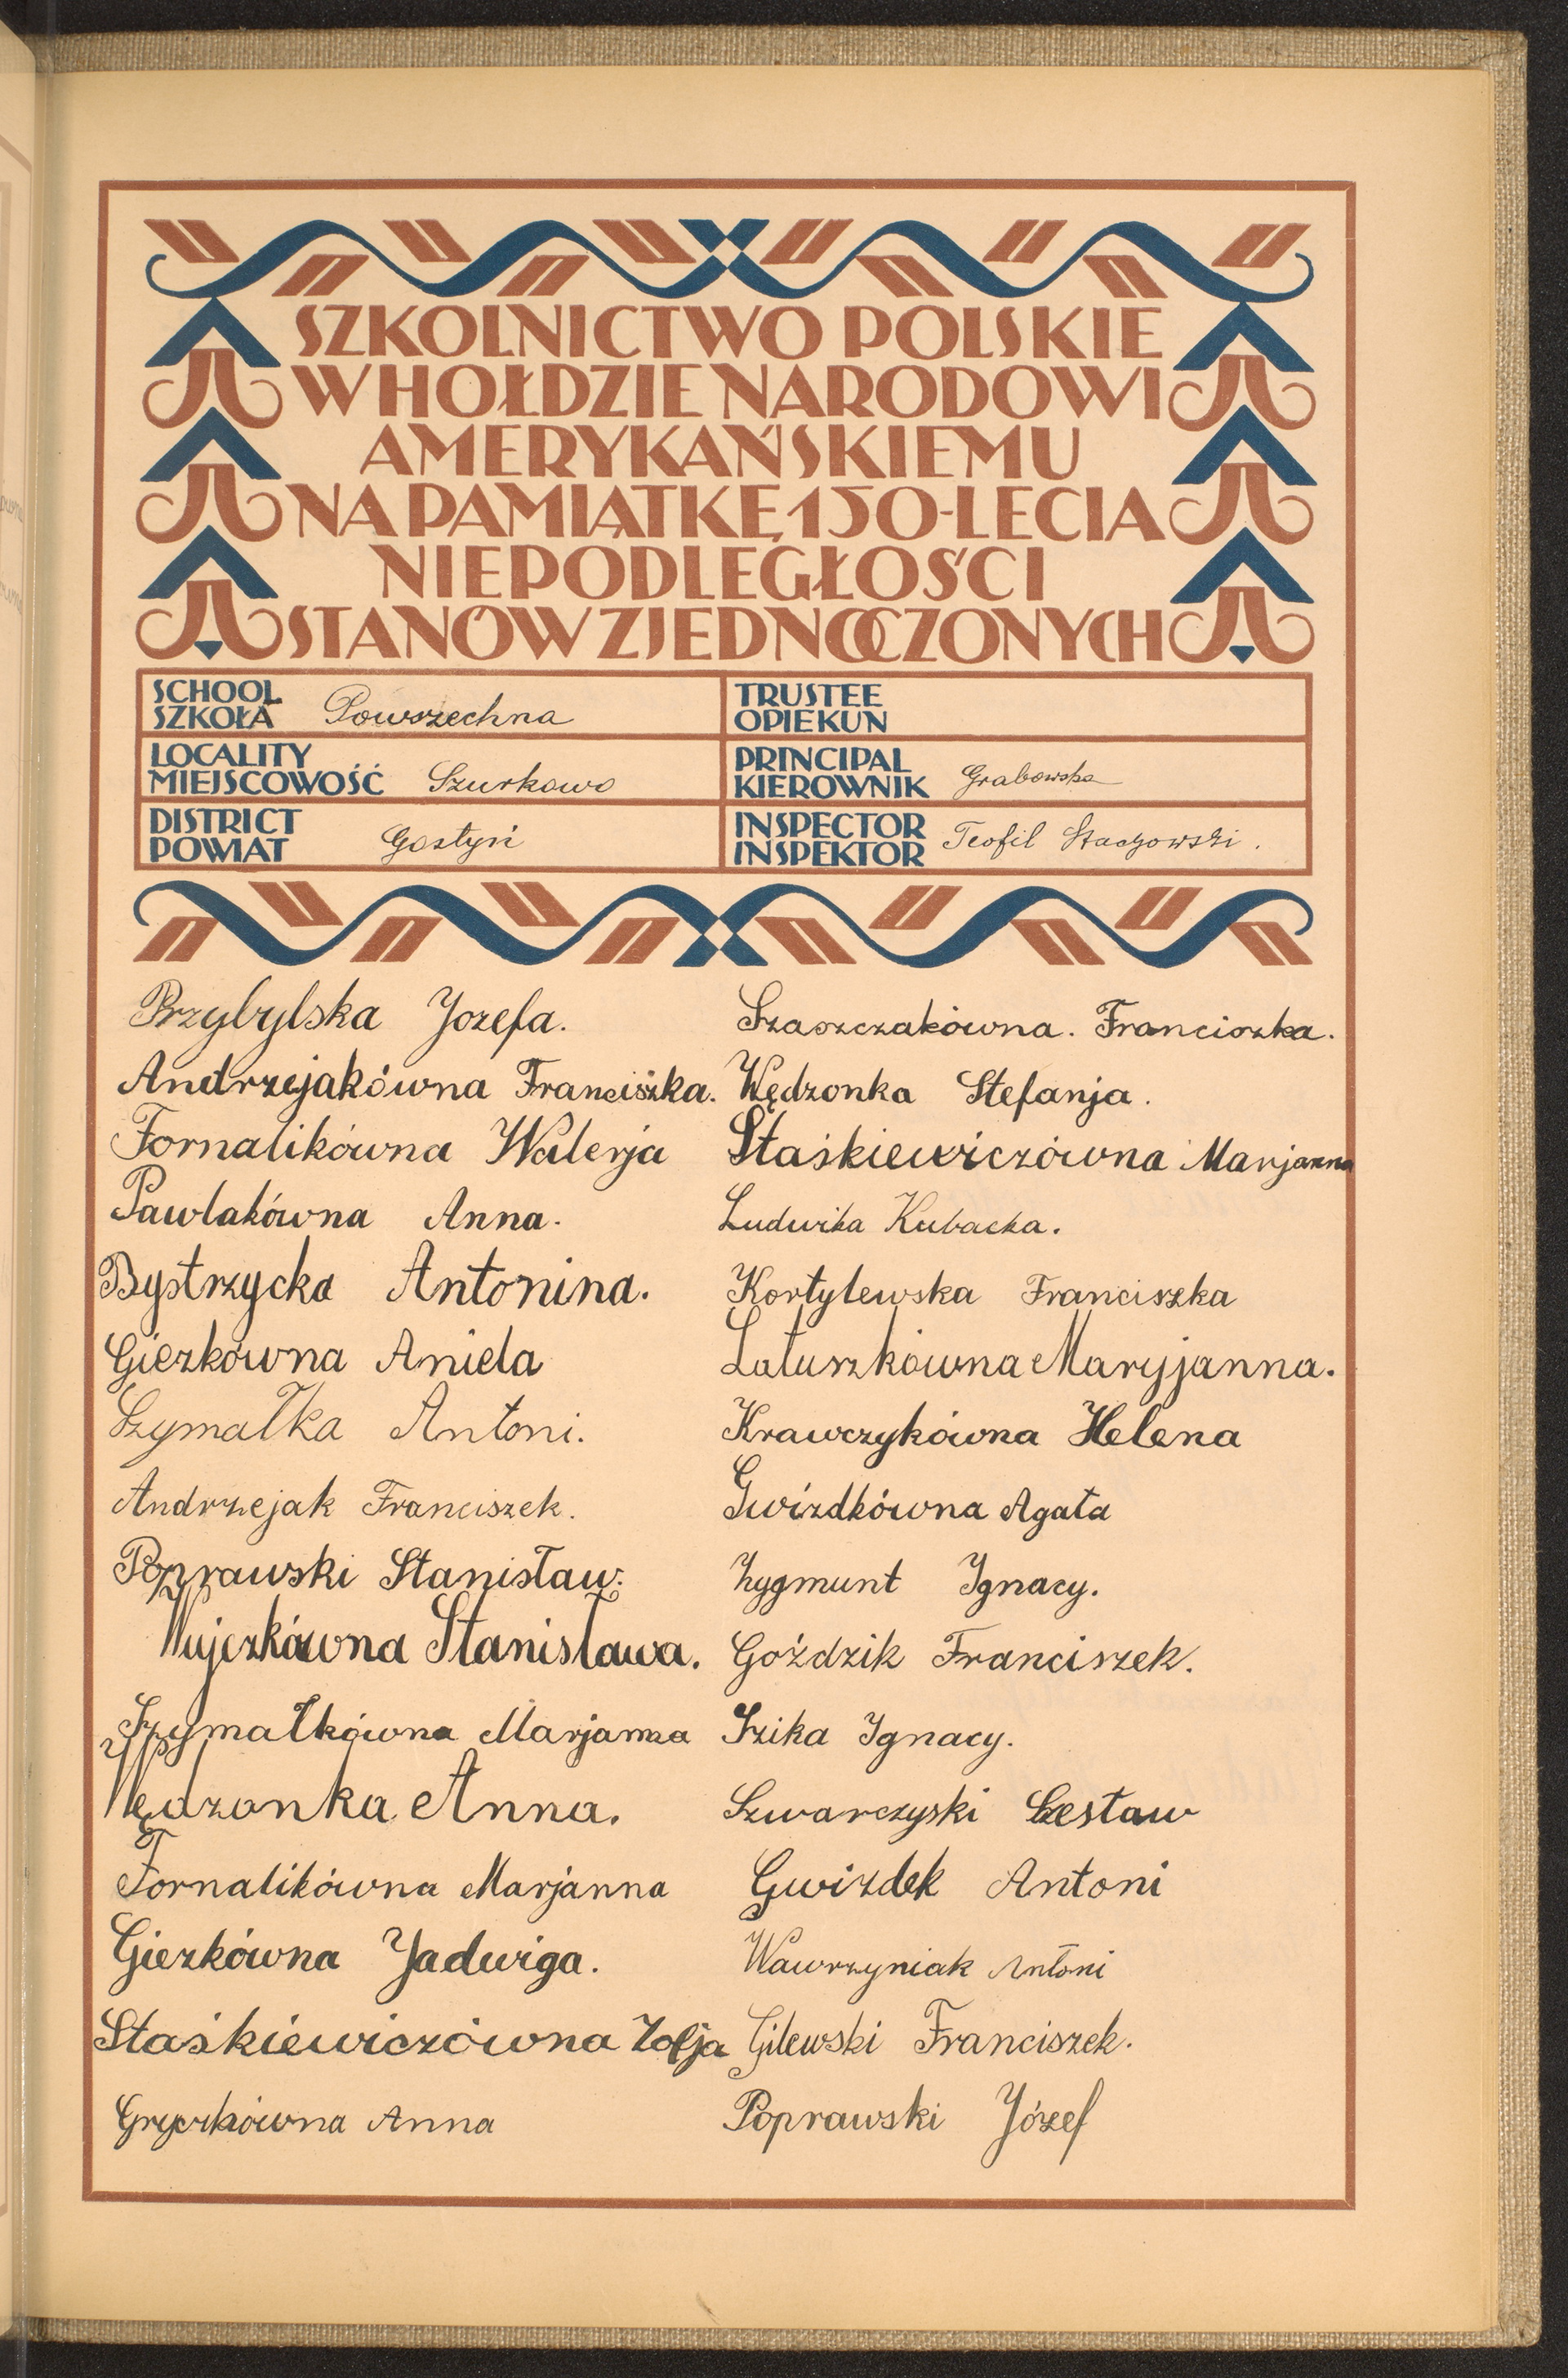 SZKOLNICTWO POLSKIE
W HOŁDZIE NARODOWI
AMERYKAŃSKIEMU
NA PAMIĄTKĘ 150-LECIA
NIEPODLEGŁOŚCI
STANÓW ZJEDNOCZONYCH
SCHOOL
SZKOŁA Powszechna
TRUSTEE
OPIEKUN
LOCALITY
MIEJSCOWOŚĆ Szurkowo
PRINCIPAL
KIEROWNIK Grabowska
DISTRICT
POWIAT Gostyń
INSPECTOR
INSPEKTOR Teofil Stachowski.
Przybylska Jozefa.
Andrzejakówna Franciszka.
Fornalikówna Walerja
Pawlakówna Anna.
Bystrzycka Antonina.
Giezkówna Aniela
Szymałka Antoni.
Andrzejak Franciszek.
Poprawski Stanisław.
Wujczkówna Stanisława.
Szymałkówna Marjanna
Wędzonka Anna.
Fornalikówna Marjanna
Giezkówna Jadwiga.
Staśkiewiczówna Zofja
Anna
Szaszczakówna. Franciszka.
Wędzonka Stefanja.
Staśkiewiczówna Marjanna
Ludwika Kubacka.
Kortylewska Franciszka
Latuszkówna Maryjanna.
Krawczykówna Helena
Gwizdkówna Agata
Zygmunt Ignacy.
Goździk Franciszek.
Szika Ignacy.
Szwarczyski Czesław
Gwizdek Antoni
Wawrzyniak Antoni
Gilewski Franciszek.
Poprawski Józef